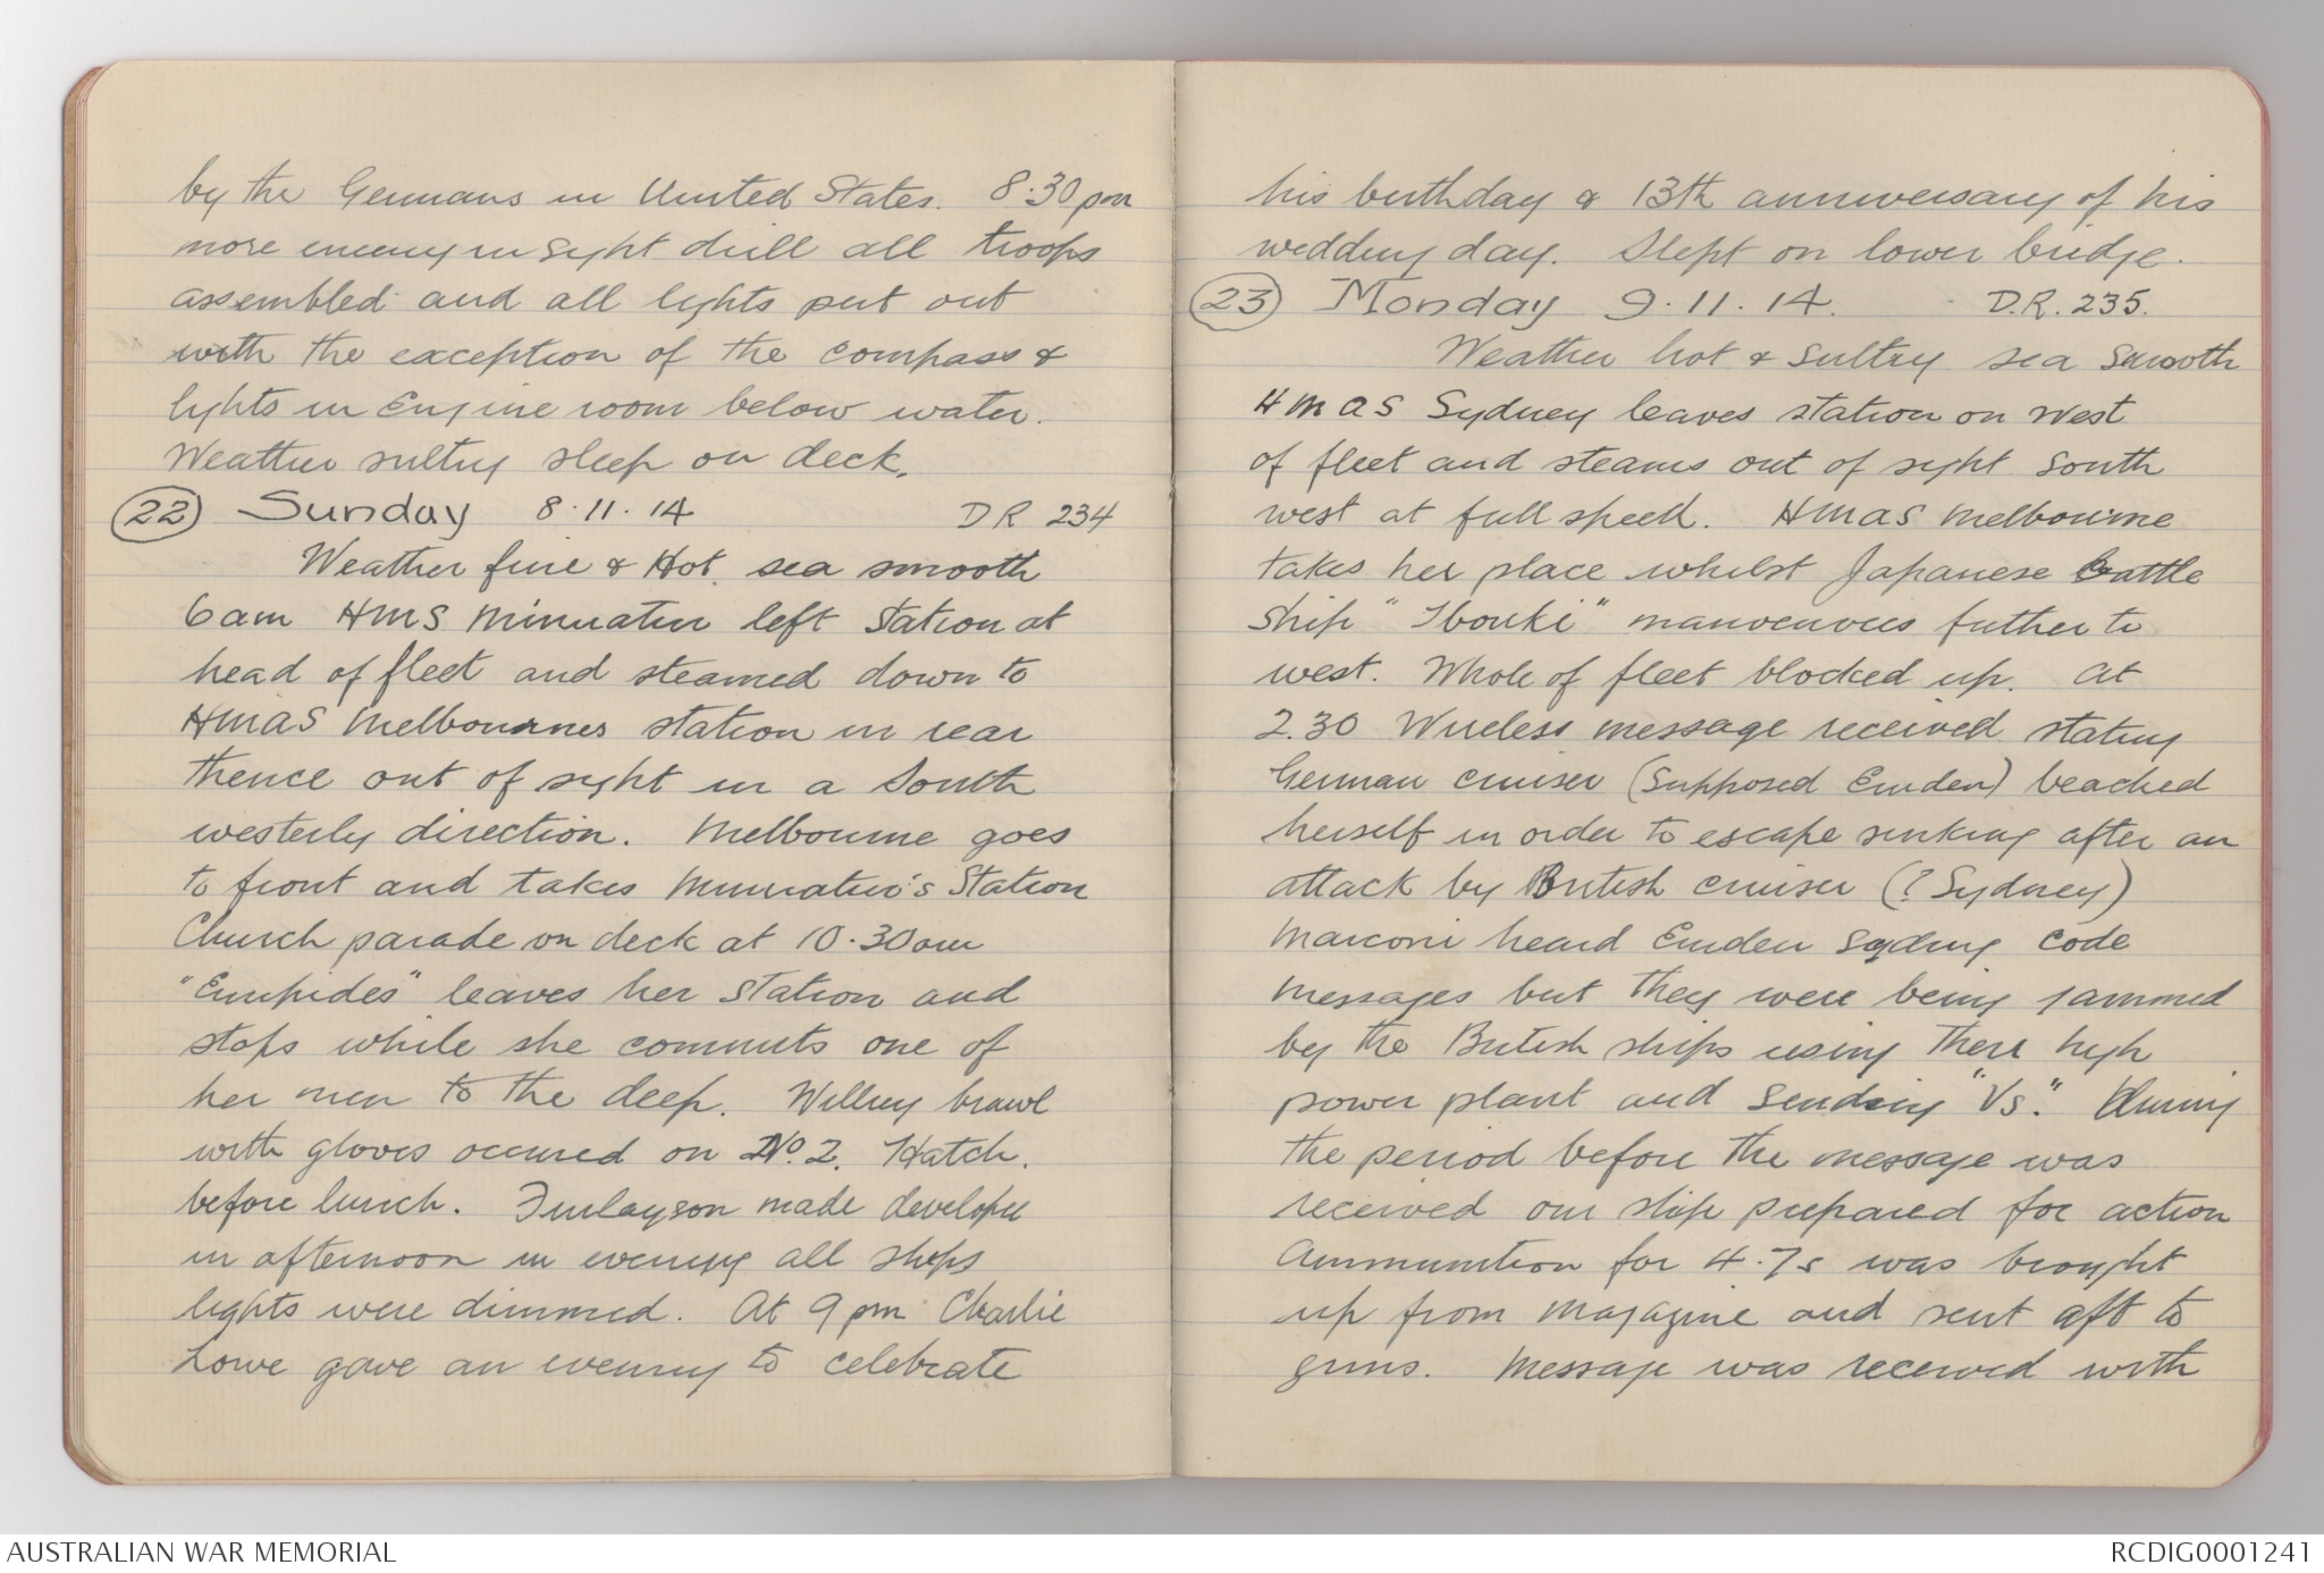 by the Germans in United States. 8.30pm
more enemy in sight drill all troops
assembled and all lights put out
with the exception of the compass &
lights in Engine room below water.
Weather sultry sleep on deck.
22 Sunday 8.11.14 DR 234
Weather fine & Hot sea smooth
6am HMS Minnatur left station at
head of fleet and steamed down to
HMAS Melbournes station in rear
thence out of sight in a South
westerly direction. Melbourne goes
to front and takes Minnatur's Station
Church parade on deck at 10.30am
"Euripides" leaves her station and
stops while she commits one of
her men to the deep. Willing brawl
with gloves occured on No. 2. Hatch.
before lunch. Finlayson made developer
in afternoon in evening all ships
lights were dimmed. At 9pm Charlie
Lowe gave an evening to celebrate
his birthday & 13th anniversary of his
wedding day. Slept on lower bridge.
23 Monday 9.11.14. D.R. 235.
Weather hot & sultry sea smooth
HMAS Sydney leaves station on West
of fleet and steams out of sight South
west at full speed. HMAS Melbourne
takes her place whilst Japanese Battle
Ship "Ibouki" manoeuvres futher to
west. Whole of fleet blocked up. At
2.30 Wireless message received stating
German cruiser (supposed Emden) beached
herself in order to escape sinking after an
attack by British cruiser (? Sydney)
Marconi heard Emden code
messages but they were being jammed
by the British ships using there high
power plant and sending "Vs". During
the period before the message was
received our ship prepared for action
Ammunition for 4.7s was brought
up from magazine and sent aft to
guns. Message was received with
AUSTRALIAN WAR MEMORIAL
RCDIG0001241